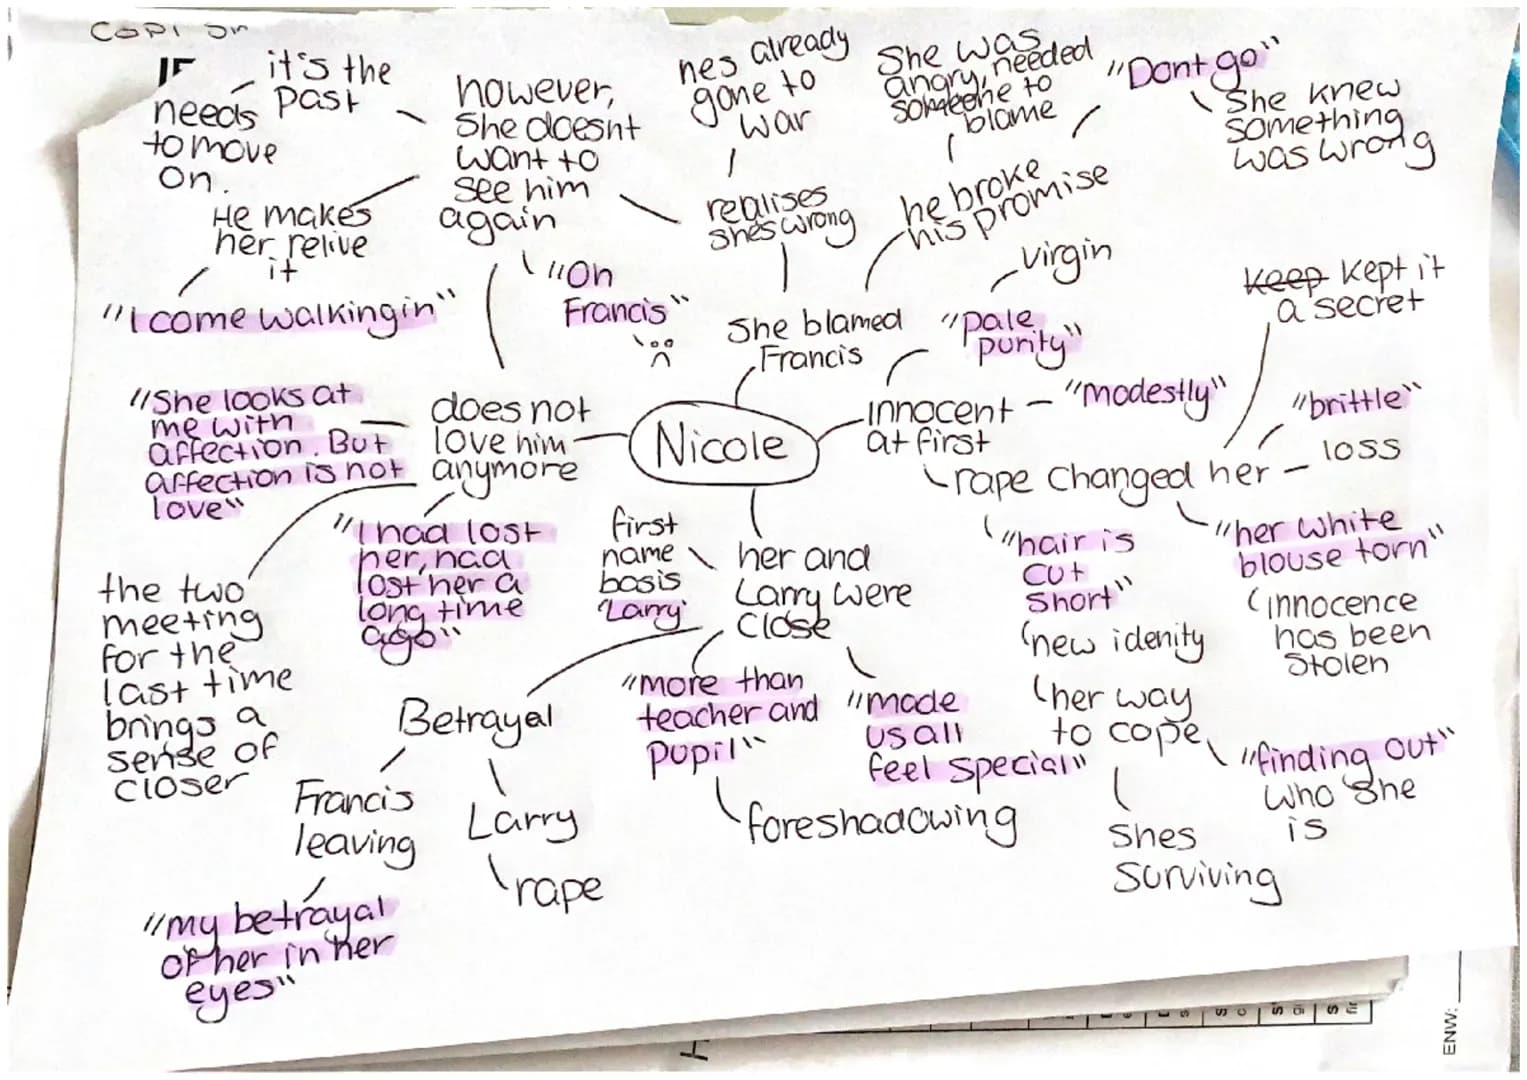 it's the
past
needs
to move
on.
however,
she doesnt
want to
see him
again
He makes
her relive
it
"I come walking in"
"Oh
Francis"
hes already
gone to
war
realises
shes wrong
She was
angry, needed
someone to
blame
"Dont go"
She knew
something
was wrong
he broke
his promise
She blamed
Francis
virgin
"pale
purity"
keep kept it
a secret
innocent
at first
"modestly"
"brittle"
loss
rape changed her
Nicole
does not
love him
anymore
"She looks at
me with
affection. But
affection is not
love"
"I had lost
her, had
lost her a
long time
ago"
the two
meeting
for the
last time
brings a
sense of
closer
first
name
basis
'Larry'
her and
Larry were
close
"hair is
cut
short"
new idenity
her way
to cope
"her white
blouse torn"
innocence
has been
stolen
"finding out"
who she
is
Shes
surviving
Betrayal
Francis
leaving
"my betrayal
of her in her
eyes"
Larry
rape
"more than
teacher and
pupil"
foreshadowing
"made
us all
feel special"
ENW: